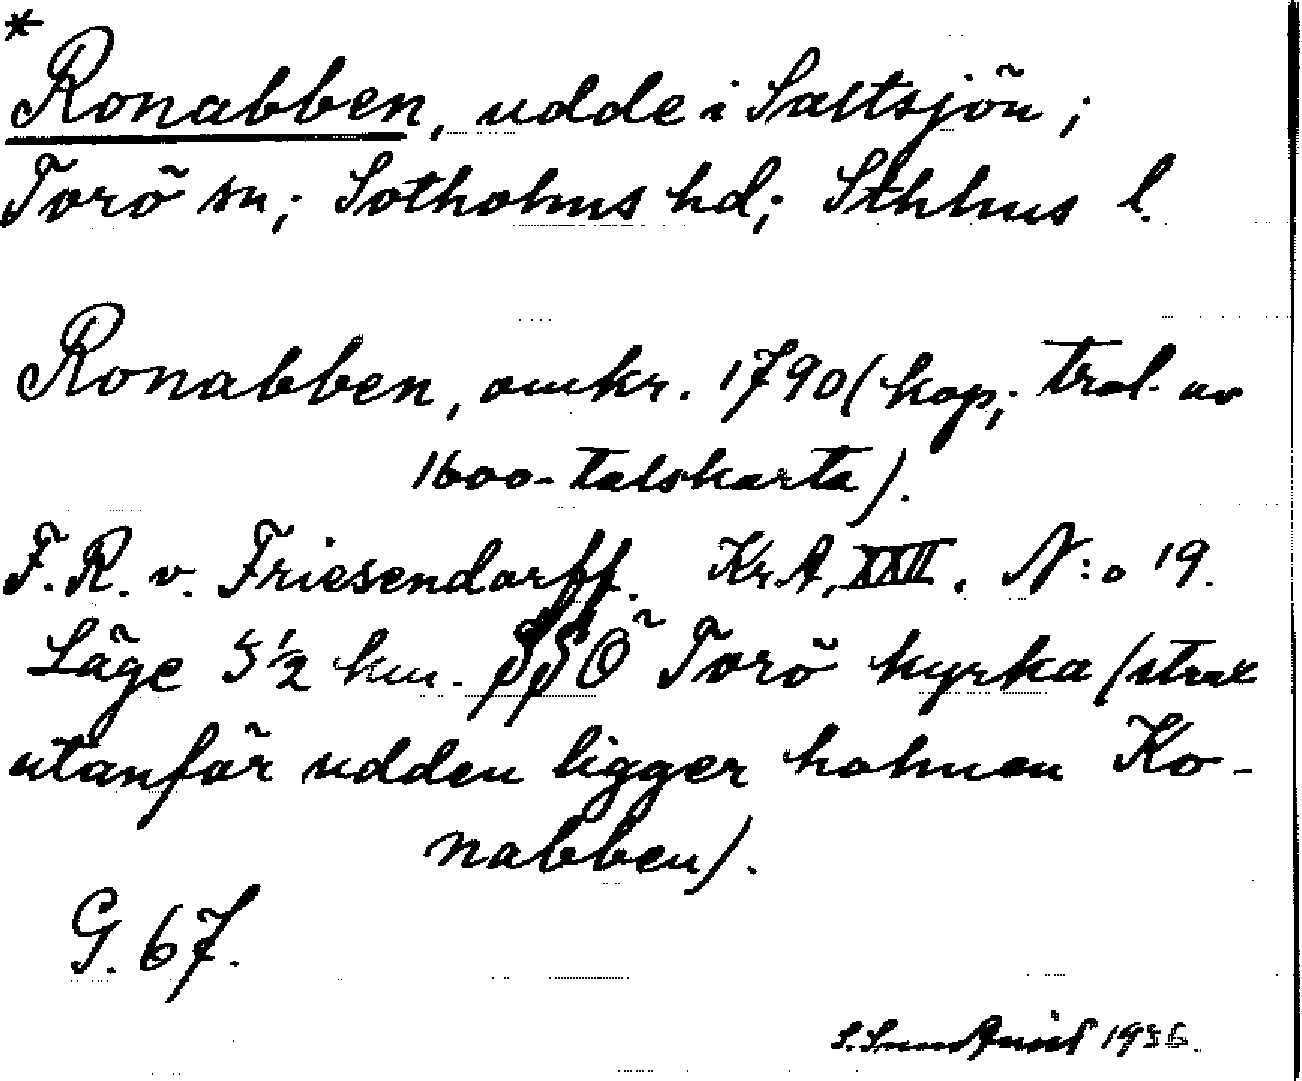 *
Ronabben, udde i Saltsjön;
Torö sn; Sotholms hd; Sthlms l.
Ronabben, omkr. 1790 (kop; trol. av
1600-talskarta).
F. R. v. Friesendorff. Kr. A, XXII. N:o 19.
Läge 5 1/2 km. SSÖ Torö kyrka (strax
utanför udden ligger holmen Ko-
nabben).
G. 67.
S. Sundqvist 1936.